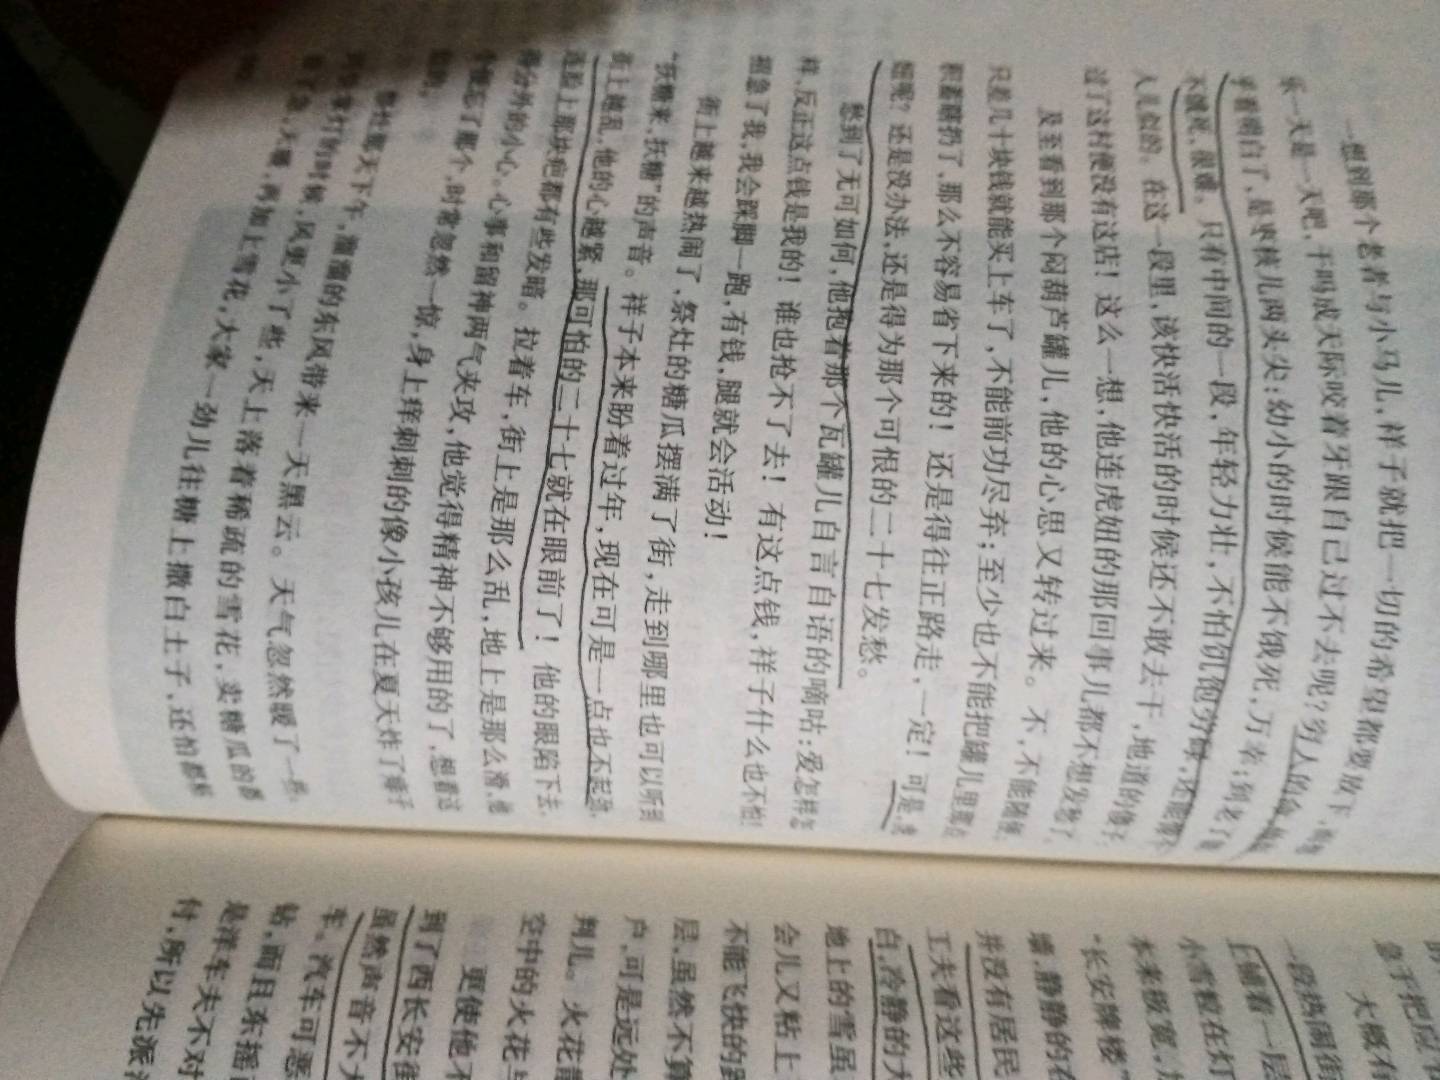 一想到那个老者与小马儿,祥子就把一切的希望都要放下,
乐一天是一天吧,干吗成天际咬着牙跟自己过不去呢?穷人的命,
看明白了,是枣核儿两头尖:幼小的时候能不饿死,万幸;到老了
不饿死,很难。只有中间的一段,年轻力壮,不怕饥饱劳碌,还能
人儿似的。在这一段里,该快活快活的时候还不敢去干,地道的傻子;
过了这村便没有这店!这么一想,他连虎妞的那回事儿都不想发愁了。
及至看到那个闷葫芦罐儿,他的心思又转过来。不,不能随便;
只差几十块钱就能买上车了,不能前功尽弃;至少也不能把罐儿里那点
积蓄瞎扔了,那么不容易省下来的!还是得往正路走,一定!可是,
呢?还是没办法,还是得为那个可恨的二十七发愁。
愁到了无可如何,他抱着那个瓦罐儿自言自语的嘀咕:爱怎样怎
样,反正这点钱是我的!谁也抢不了去!有这点钱,祥子什么也不怕!
招急了我,我会跺脚一跑,有钱,腿就会活动!
街上越来越热闹了,祭灶的糖瓜摆满了街,走到哪里也可以听到
“扶糖来,扶糖”的声音。祥子本来盼着过年,现在可是一点也不起劲,
街上越乱,他的心越紧,那可怕的二十七就在眼前了!他的眼陷下去,
连脸上那块疤都有些发暗。拉着车,街上是那么乱,地上是那么滑,
得分外的小心。心事和留神两气夹攻,他觉得精神不够用的了,想着这
个便忘了那个,时常忽然一惊,身上痒刺刺的像小孩儿在夏天炸了痱子
似的。
祭灶那天下午,溜溜的东风带来一天黑云。天气忽然暖了一些。
的时候,风更小了些,天上落着稀疏的雪花,卖糖瓜的都
了急,天暖,再加上雪花,大家一劲儿往糖上撒白土子,还怕都
急于把应
大概有
一段热闹街
上铺着一层
小雪粒在灯
本来极宽,
“长安牌楼”
墙,静静的在
并没有居民
工夫看这些
白,冷静的大
地上的雪虽
会儿又粘上
不能飞快的到
层,虽然不算
户,可是远处
判儿。火花
空中的火花
更使他不
到了西长安街
虽然声音不大
车。汽车可恶
钻,而且东摇
是洋车夫不对
付,所以先派